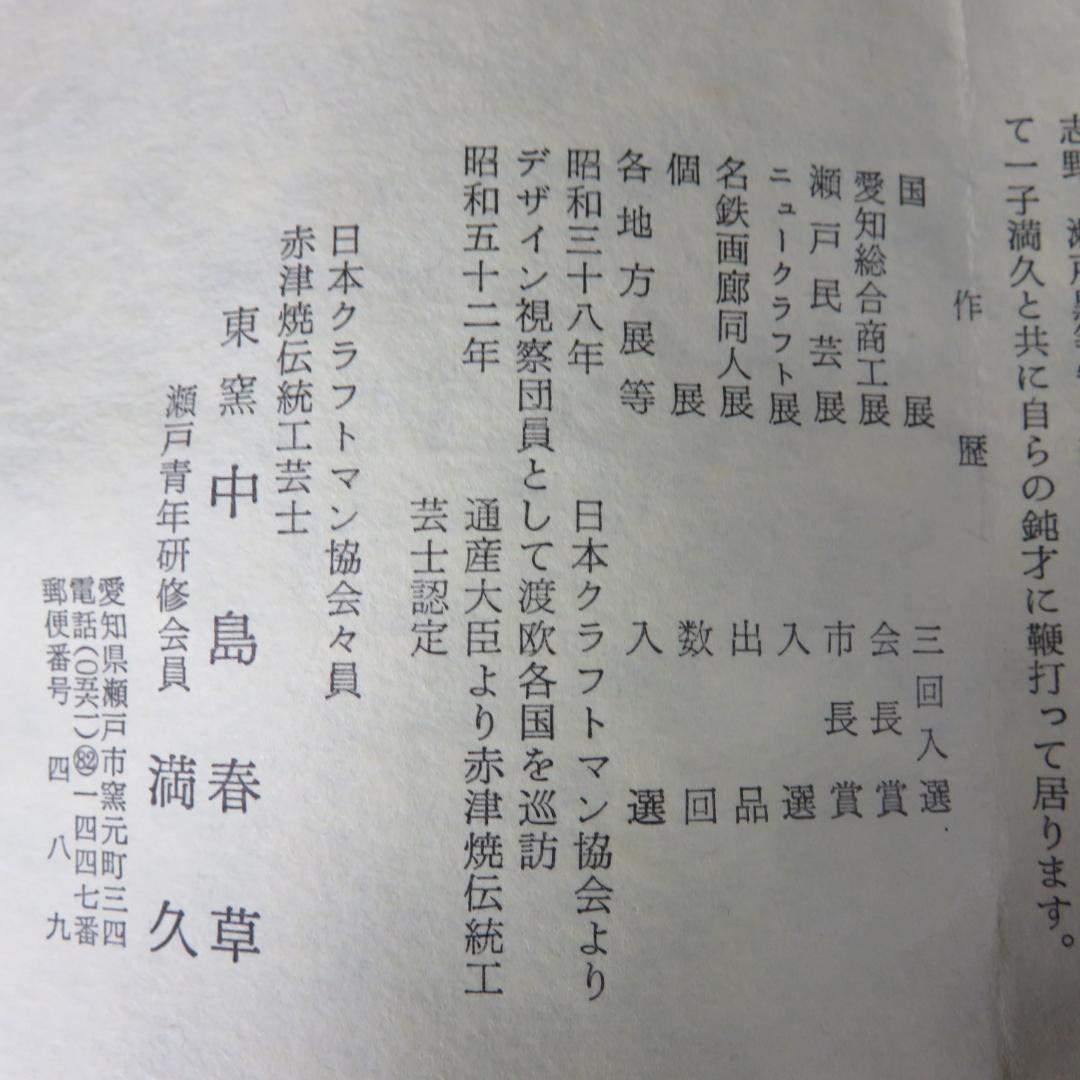 志野
て一子満久と共に自らの鈍才に鞭打って居ります。
作歴
国展 三回入選
愛知総合商工展 会長賞
瀬戸民芸展 市長賞
ニュークラフト展 入選
名鉄画廊同人展 出品
個展 数回
各地方展等 入選
昭和三十八年 日本クラフトマン協会より
デザイン視察団員として渡欧各国を巡訪
昭和五十二年 通産大臣より赤津焼伝統工
芸士認定
日本クラフトマン協会々員
赤津焼伝統工芸士
東窯 中島春草
瀬戸青年研修会員 満久
愛知県瀬戸市窯元町三四
電話(〇五六一)82一四四七番
郵便番号 四八九